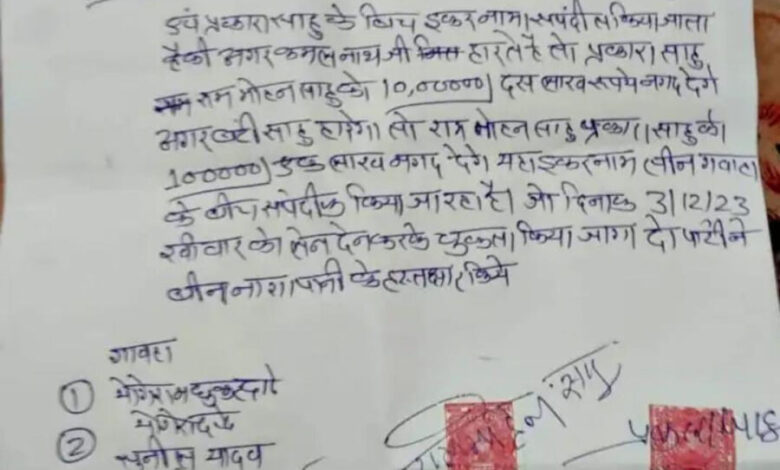 एवं प्रकाश साहु के बिच इकरनामा संपंदील किया जाता
हैकी अगर कमलनाथ जी हारते है तो प्रकाश साहु
राम मोहन साहु को 10,00000/ दस लाख रूपये नगद देगे
अगर बन्टी साहु हारेगा तो राम मोहन साहु प्रकाश साहु को
100000/ एक लाख नगद देगे यहा इकरनामा तीन गवाहा
के बीच संपंदीत किया जा रहा है। जो दिनांक 3/12/23
रवीवार को लेन देन करके चुकता किया जागा दो पार्टी ने
बीन नाशा पानी के हस्तक्षार किये
गावहा
①
②
यादव
राम मोहन साहु